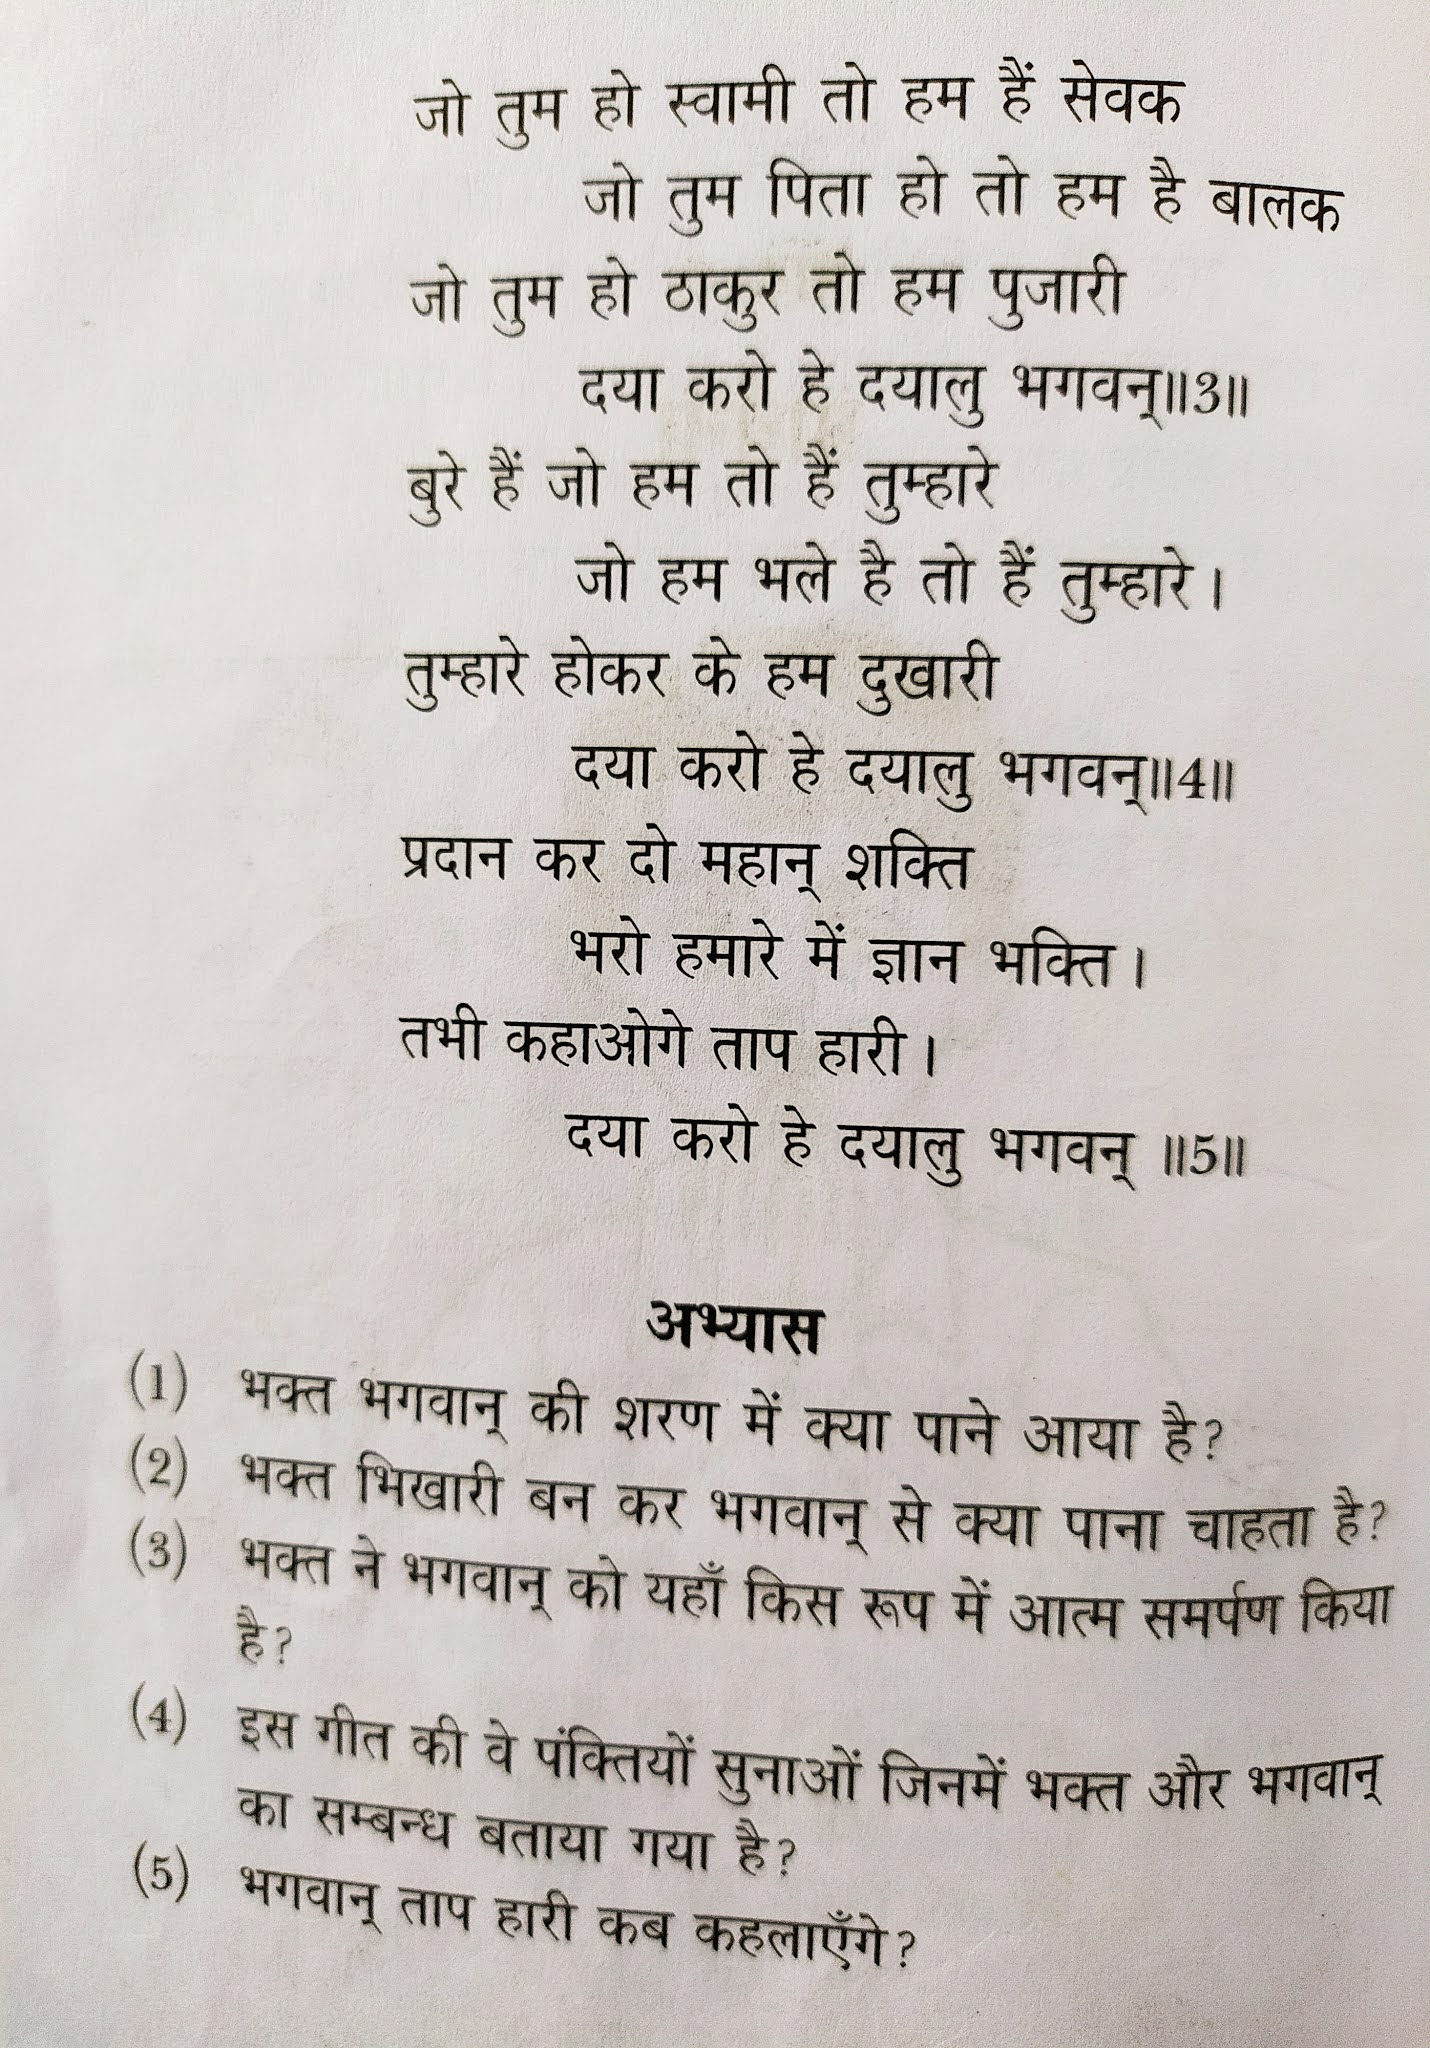 जो तुम हो स्वामी तो हम हैं सेवक
जो तुम पिता हो तो हम है बालक
जो तुम हो ठाकुर तो हम पुजारी
दया करो हे दयालु भगवन्॥3॥
बुरे हैं जो हम तो हैं तुम्हारे
जो हम भले है तो हैं तुम्हारे।
तुम्हारे होकर के हम दुखारी
दया करो हे दयालु भगवन्॥4॥
प्रदान कर दो महान् शक्ति
भरो हमारे में ज्ञान भक्ति।
तभी कहाओगे ताप हारी।
दया करो हे दयालु भगवन् ॥5॥
अभ्यास
(1) भक्त भगवान् की शरण में क्या पाने आया है?
(2) भक्त भिखारी बन कर भगवान् से क्या पाना चाहता है?
(3) भक्त ने भगवान् को यहाँ किस रूप में आत्म समर्पण किया
है?
(4) इस गीत की वे पंक्तियों सुनाओं जिनमें भक्त और भगवान्
का सम्बन्ध बताया गया है?
(5) भगवान् ताप हारी कब कहलाएँगे?